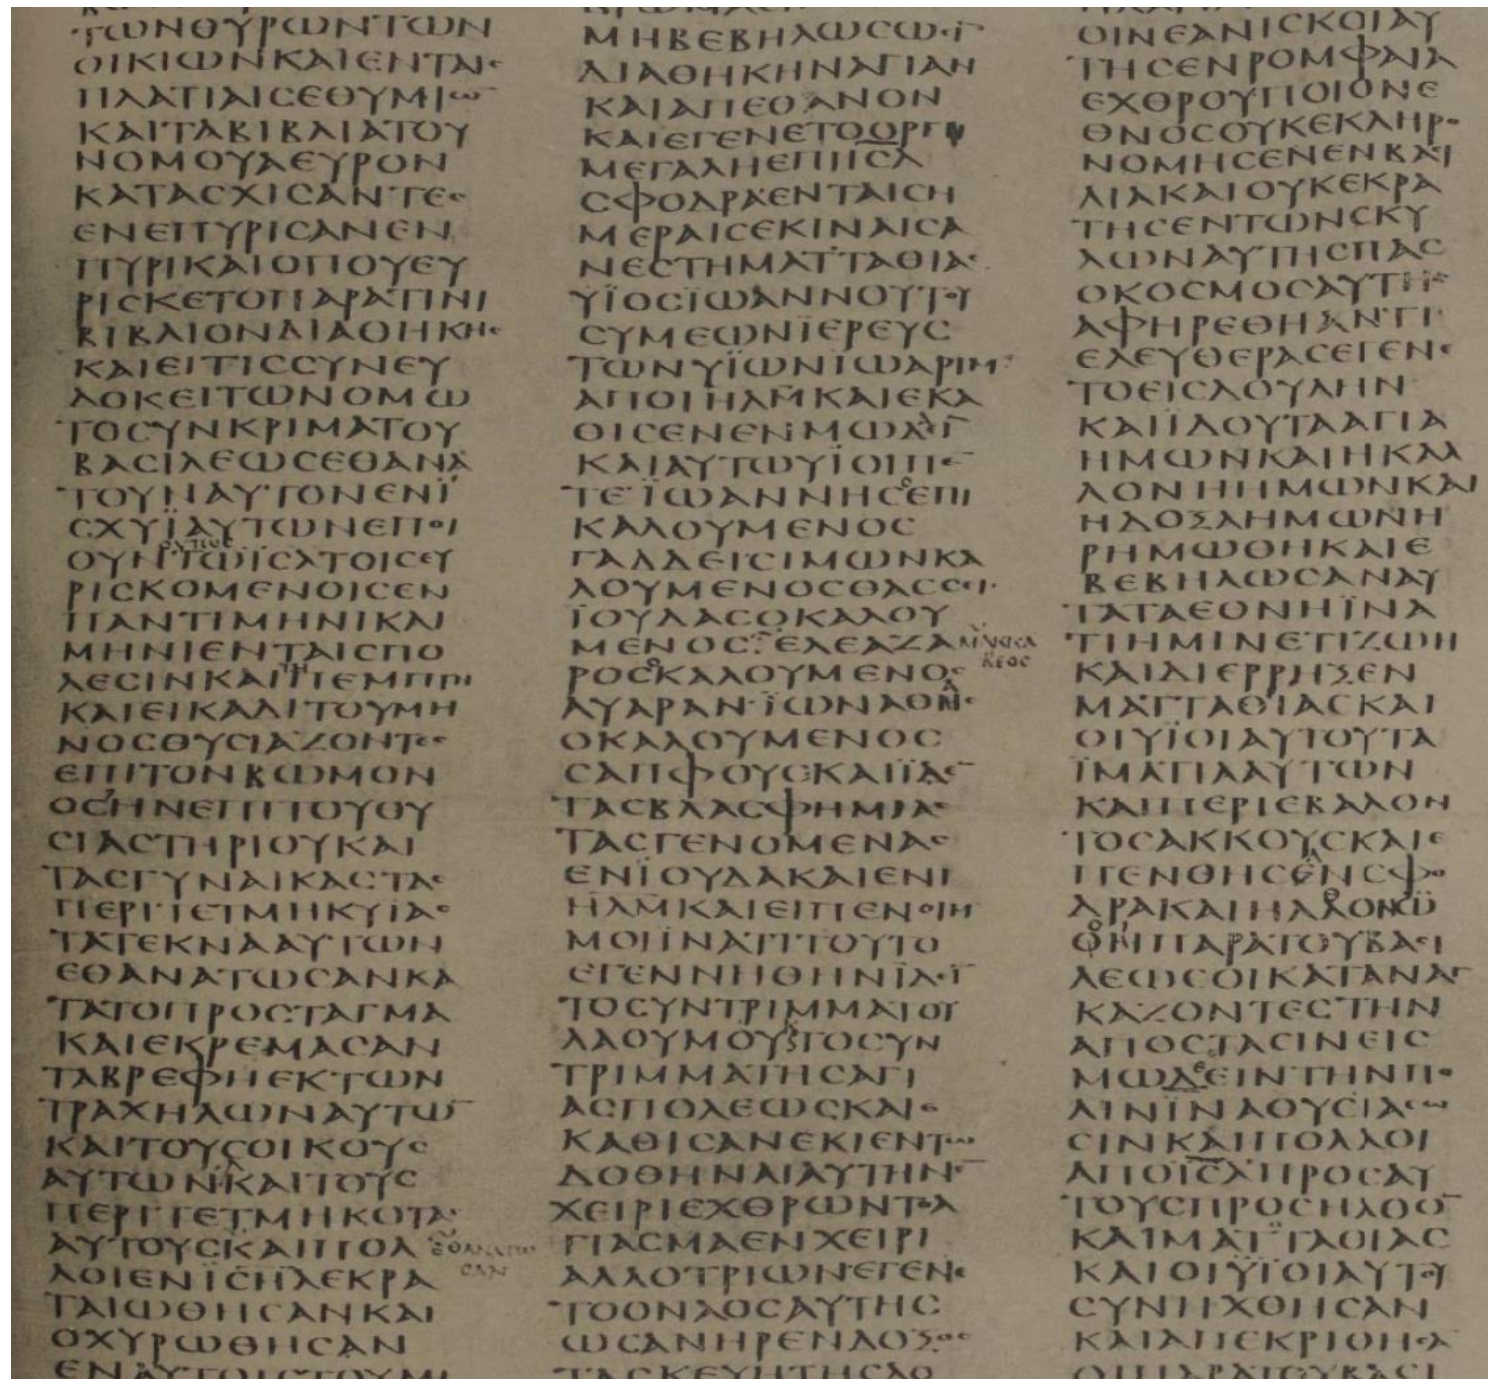 ΤΩΝΘΥΡΩΝΤΩΝ
ΟΙΚΙΩΝΚΑΙΕΝΤΑΙϹ
ΠΛΑΤΙΑΙϹΕΘΥΜΙΩ̅
ΚΑΙΤΑΒΙΒΛΙΑΤΟΥ
ΝΟΜΟΥΑΕΥΡΟΝ
ΚΑΤΑϹΧΙϹΑΝΤΕϹ
ΕΝΕΠΥΡΙϹΑΝΕΝ
ΠΥΡΙΚΑΙΟΠΟΥΕΥ
ΡΙϹΚΕΤΟΠΑΡΑΤΙΝΙ
ΒΙΒΛΙΟΝΔΙΑΘΗΚΗϹ
ΚΑΙΕΙΤΙϹϹΥΝΕΥ
ΔΟΚΕΙΤΩΝΟΜΩ
ΤΟϹΥΝΚΡΙΜΑΤΟΥ
ΒΑϹΙΛΕΩϹΕΘΑΝΑ
ΤΟΥΝΑΥΤΟΝΕΝΪ
ϹΧΥΪΑΥΤΩΝΕΠΟΙ
ΟΥΝΤΩΙϹΑΤΟΙϹΕΥ
ΡΙϹΚΟΜΕΝΟΙϹΕΝ
ΠΑΝΤΙΜΗΝΙΚΑΙ
ΜΗΝΙΕΝΤΑΙϹΠΟ
ΛΕϹΙΝΚΑΙΤΗΠΕΜΠΤΗ
ΚΑΙΕΙΚΑΔΙΤΟΥΜΗ
ΝΟϹΘΥϹΙΑΖΟΝΤΕϹ
ΕΠΙΤΟΝΒΩΜΟΝ
ΟϹΗΝΕΠΙΤΟΥΘΥ
ϹΙΑϹΤΗΡΙΟΥΚΑΙ
ΤΑϹΓΥΝΑΙΚΑϹΤΑϹ
ΠΕΡΙΤΕΤΜΗΚΥΪΑϹ
ΤΑΤΕΚΝΑΑΥΤΩΝ
ΕΘΑΝΑΤΩϹΑΝΚΑ
ΤΑΤΟΠΡΟϹΤΑΓΜΑ
ΚΑΙΕΚΡΕΜΑϹΑΝ
ΤΑΒΡΕΦΗΕΚΤΩΝ
ΤΡΑΧΗΛΩΝΑΥΤΩ̅
ΚΑΙΤΟΥϹΟΙΚΟΥϹ
ΑΥΤΩΝΚΑΙΤΟΥϹ
ΠΕΡΙΤΕΤΜΗΚΟΤΑϹ
ΑΥΤΟΥϹΚΑΙΠΟΛ ΕΘΑΝΑΤΩ
ΛΟΙΕΝΪϹΗΛΕΚΡΑ ϹΑΝ
ΤΑΙΩΘΗϹΑΝΚΑΙ
ΟΧΥΡΩΘΗϹΑΝ
ΕΝΑΥΤΟΙϹΤΟΥΜΗ
ΜΗΒΕΒΗΛΩϹΩϹΙ̅
ΔΙΑΘΗΚΗΝΑΓΙΑΝ
ΚΑΙΑΠΕΘΑΝΟΝ
ΚΑΙΕΓΕΝΕΤΟΟΡΓΗ
ΜΕΓΑΛΗΕΠΙΙ̅Ϲ̅Λ
ϹΦΟΔΡΑΕΝΤΑΙϹΗ
ΜΕΡΑΙϹΕΚΙΝΑΙϹΑ
ΝΕϹΤΗΜΑΤΤΑΘΙΑϹ
ΥΪΟϹΪΩΑΝΝΟΥΤΟΥ
ϹΥΜΕΩΝΪΕΡΕΥϹ
ΤΩΝΥΪΩΝΪΩΑΡΙΜ
ΑΠΟΙΗΛΜΚΑΙΕΚΑ
ΘΙϹΕΝΕΝΜΩΔΑΪ̅
ΚΑΙΑΥΤΩΥΪΟΙΠΕ̅
ΤΕΪΩΑΝΝΗϹΟΕΠΙ
ΚΑΛΟΥΜΕΝΟϹ
ΓΑΔΔΕΙϹΙΜΩΝΚΑ
ΛΟΥΜΕΝΟϹΘΑϹϹΕΙϹ
ΪΟΥΔΑϹΟΚΑΛΟΥ
ΜΕΝΟϹΕΛΕΑΖΑ ΜΑΚΚΑ
ΡΟϹΟΚΑΛΟΥΜΕΝΟϹ ΒΕΟϹ
ΑΥΑΡΑΝΪΩΝΑΘΗϹ
ΟΚΑΛΟΥΜΕΝΟϹ
ϹΑΠΦΟΥϹΚΑΙΪΔΕ̅
ΤΑϹΒΛΑϹΦΗΜΙΑϹ
ΤΑϹΓΕΝΟΜΕΝΑϹ
ΕΝΪΟΥΔΑΚΑΙΕΝΙ
ΗΛΜ̅ΚΑΙΕΙΠΕΝΟΙΗ
ΜΟΙΪΝΑΤΙΤΟΥΤΟ
ΕΓΕΝΝΗΘΗΝΪΔΙ̅
ΤΟϹΥΝΤΡΙΜΜΑΤΟΥ
ΛΑΟΥΜΟΥϏΤΟϹΥΝ
ΤΡΙΜΜΑΤΗϹΑΓΙ
ΑϹΠΟΛΕΩϹΚΑΙΕ
ΚΑΘΙϹΑΝΕΚΙΕΝΤΩ
ΔΟΘΗΝΑΙΑΥΤΗΝΕ̅
ΧΕΙΡΙΕΧΘΡΩΝΤΟΑ
ΓΙΑϹΜΑΕΝΧΕΙΡΙ
ΑΛΛΟΤΡΙΩΝΕΓΕΝΕ
ΤΟΟΝΑΟϹΑΥΤΗϹ
ΩϹΑΝΗΡΕΝΔΟΞΟϹ
ΤΑϹΚΕΥΗΤΗϹΔΟ
ΟΙΝΕΑΝΙϹΚΟΙΑΥ
ΤΗϹΕΝΡΟΜΦΑΙΑ
ΕΧΘΡΟΥΠΟΙΟΝΕ
ΘΝΟϹΟΥΚΕΚΛΗΡΟ
ΝΟΜΗϹΕΝΕΝΒΑϹΙ
ΛΙΑΚΑΙΟΥΚΕΚΡΑ
ΤΗϹΕΝΤΩΝϹΚΥ
ΛΩΝΑΥΤΗϹΠΑϹ
ΟΚΟϹΜΟϹΑΥΤΗϹ
ΑΦΗΡΕΘΗΑΝΤΙ
ΕΛΕΥΘΕΡΑϹΕΓΕΝΕ
ΤΟΕΙϹΔΟΥΛΗΝ
ΚΑΙΪΔΟΥΤΑΑΓΙΑ
ΗΜΩΝΚΑΙΗΚΑΛ
ΛΟΝΗΗΜΩΝΚΑΙ
ΗΔΟΞΑΗΜΩΝΗ
ΡΗΜΩΘΗΚΑΙΕ
ΒΕΒΗΛΩϹΑΝΑΥ
ΤΑΤΑΕΘΝΗΪΝΑ
ΤΙΗΜΙΝΕΤΙΖΩΗ
ΚΑΙΔΙΕΡΡΗΞΕΝ
ΜΑΤΤΑΘΙΑϹΚΑΙ
ΟΙΥΪΟΙΑΥΤΟΥΤΑ
ΪΜΑΤΙΑΑΥΤΩΝ
ΚΑΙΠΕΡΙΕΒΑΛΟΝ
ΤΟϹΑΚΚΟΥϹΚΑΙΕ
ΠΕΝΘΗϹΕΝϹΦΟ
ΔΡΑΚΑΙΗΛΘΟΝ
ΠΑΡΑΤΟΥΒΑϹΙ
ΛΕΩϹΟΙΚΑΤΑΝΑΓ
ΚΑΖΟΝΤΕϹΤΗΝ
ΑΠΟϹΤΑϹΙΝΕΙϹ
ΜΩΔΕΕΙΝΤΗΝΠΟ
ΛΙΝΪΝΑΘΥϹΙΑϹΩ
ϹΙΝΚΑΙΠΟΛΛΟΙ
ΑΠΟΪ̅Ϲ̅ΛΠΡΟϹΑΥ
ΤΟΥϹΠΡΟϹΗΛΘΟ̅
ΚΑΙΜΑΤΤΑΘΙΑϹ
ΚΑΙΟΙΥΪΟΙΑΥΤΟΥ
ϹΥΝΗΧΘΗϹΑΝ
ΚΑΙΑΠΕΚΡΙΘΗϹΑ
ΟΙΠΑΡΑΤΟΥΒΑϹΙ